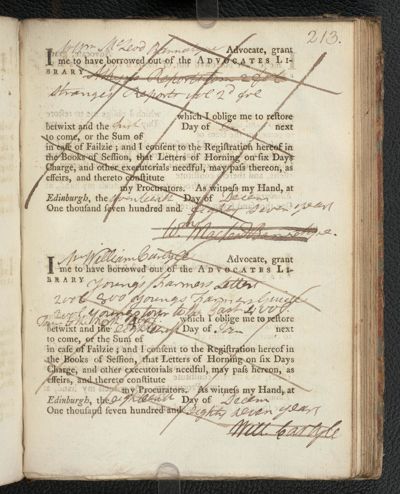 213.
I Wm McLeod Bannatyne Advocate, grant
me to have borrowed out of the ADVOCATES LI-
BRARY
Stranges Reports vol 2d fol
which I oblige me to restore
betwixt and the Day of next
to come, or the Sum of
in case of Failzie; and I consent to the Registration hereof in
the Books of Session, that Letters of Horning on six Days
Charge, and other executorials needful, may pass thereon, as
effeirs, and thereto constitute
my Procurators. As witness my Hand, at
Edinburgh, the Day of Decem
One thousand seven hundred and eighty seven years
I Mr William Carlyle Advocate, grant
me to have borrowed out of the ADVOCATES LI-
BRARY Youngs Farmers Letters
2 vol 8vo Youngs Farmers Guide
2 vol Youngs Tour to the East 4 vol
which I oblige me to restore
betwixt and the eighteenth Day of next
to come, or the Sum of
in case of Failzie; and I consent to the Registration hereof in
the Books of Session, that Letters of Horning on six Days
Charge, and other executorials needful, may pass hereon, as
effeirs, and thereto constitute
my Procurators. As witness my Hand, at
Edinburgh, the eighteenth Day of Decem
One thousand seven hundred and eighty seven years
Will: Carlyle